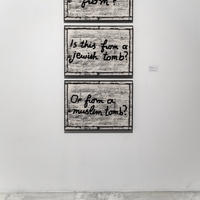 from?
Is this from a
jewish tomb?
Or from a
muslim tomb?